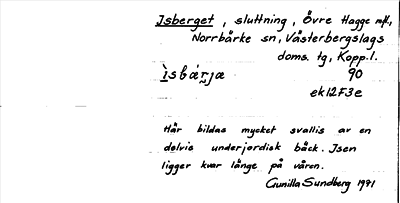 Isberget, sluttning, Övre Hagge mfl.,
Norrbärke sn, Västerbergslags
doms. tg, Kopp. l.
ìsbár̥jæ 90
ek12F3e
Här bildas mycket svallis av en
delvis underjordisk bäck. Isen
ligger kvar länge på våren.
Gunilla Sundberg 1991